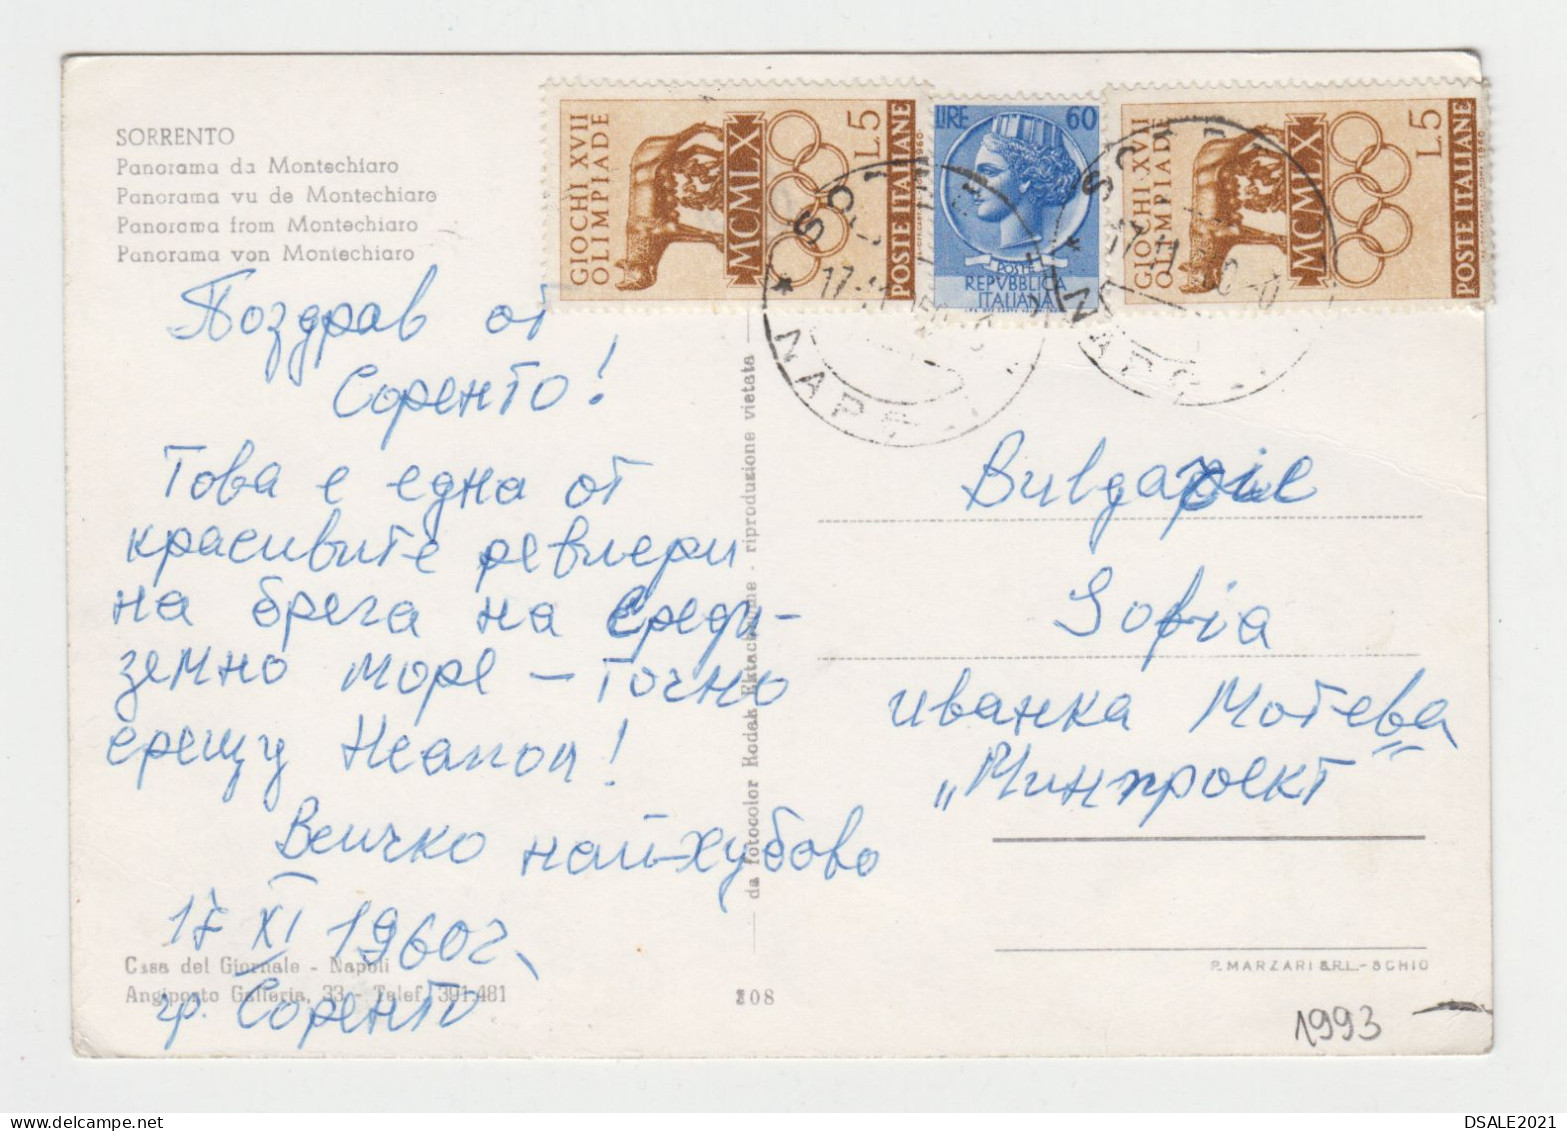 SORRENTO
Panorama da Montechiaro
Panorama vu de Montechiaro
Panorama from Montechiaro
Panorama von Montechiaro
Поздрав от
Соренто!
Това е една от
красивите ревиери
на брега на Среди-
земно море – точно
срещу Неапол!
Всичко най-хубово
17 XI 1960 г.
гр. Соренто
Casa del Giornale - Napoli
Angiporto Galleria, 33 - Telef. 391.481
da fotocolor Kodak Ektachrome - riproduzione vietata
208
GIOCHI XVII
OLIMPIADE
MCMLX
L.5
POSTE ITALIANE
LIRE 60
POSTE
REPVBBLICA
ITALIANA
GIOCHI XVII
OLIMPIADE
MCMLX
L.5
POSTE ITALIANE
Bulgarie
Sofia
Иванка Мотева
„Минпроект"
P. MARZARI S.R.L. - SCHIO
1993
DSALE2021